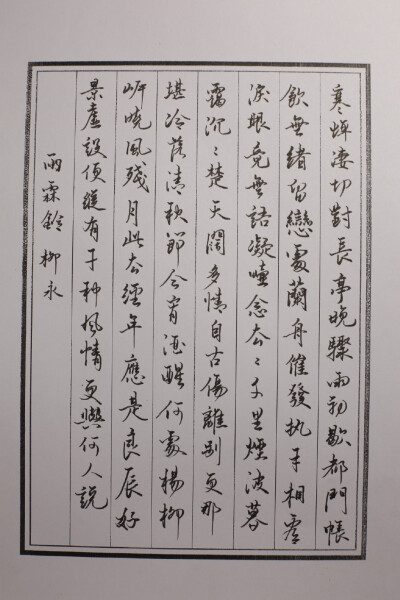 寒蝉凄切對長亭晚驟雨初歇都門帳
飲無緒留戀處蘭舟催發执手相看
淚眼竟無語凝噎念去〻千里煙波暮
靄沉〻楚天闊多情自古傷離別更那
堪冷落清秋節今宵酒醒何處楊柳
岸曉風殘月此去經年應是良辰好
景虛設便縱有千种風情更與何人說
雨霖鈴 柳永